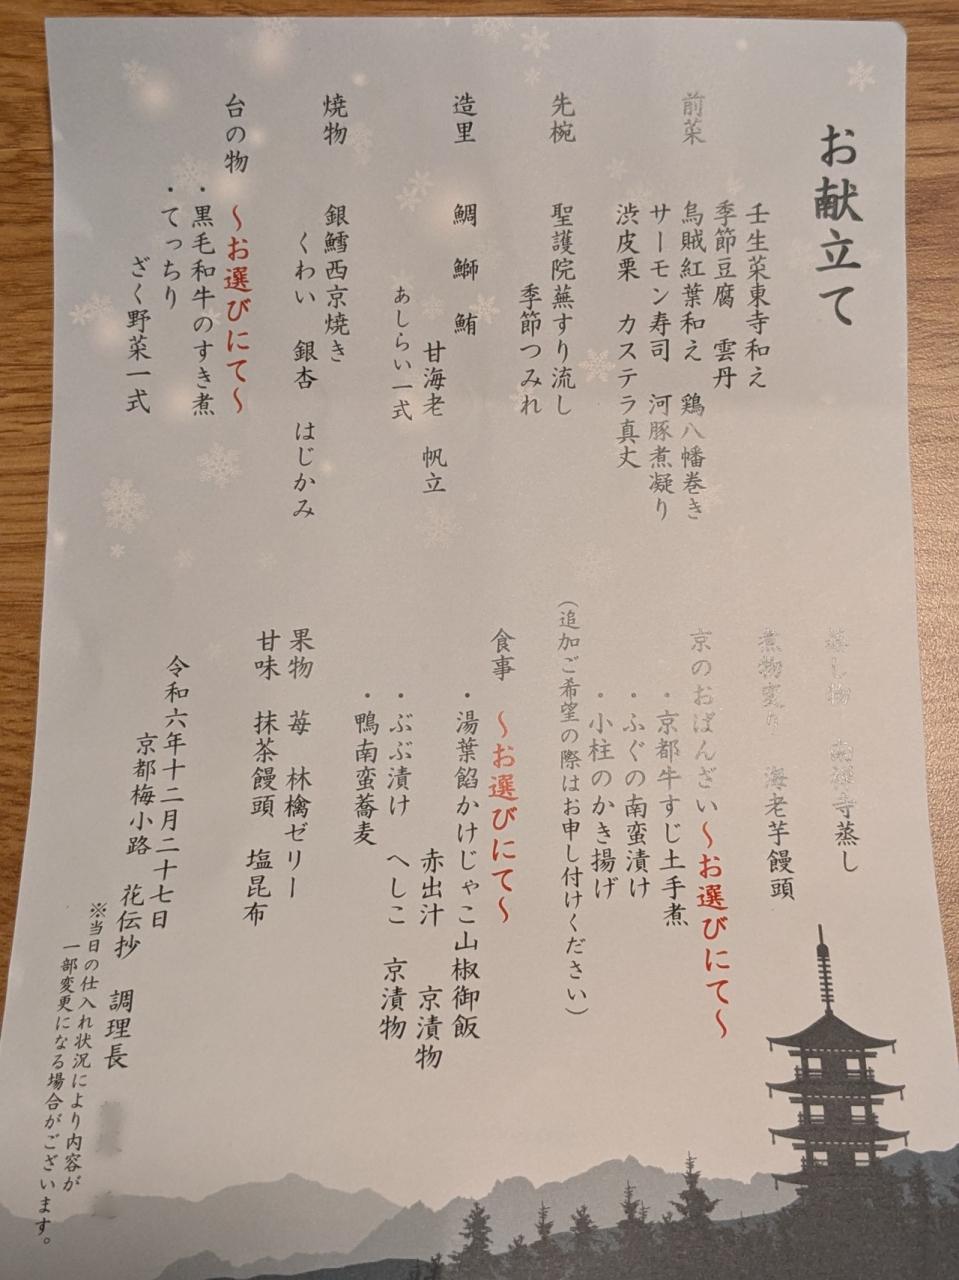 お献立て
前菜
壬生菜東寺和え
季節豆腐 雲丹
烏賊紅葉和え 鶏八幡巻き
サーモン寿司 河豚煮凝り
渋皮栗 カステラ真丈
先椀
聖護院蕪すり流し
季節つみれ
造里
鯛 鰤 鮪
甘海老 帆立
あしらい一式
焼物
銀鱈西京焼き
くわい 銀杏 はじかみ
台の物 〜お選びにて〜
・黒毛和牛のすき煮
・てっちり
ざく野菜一式
蒸し物 南禅寺蒸し
煮物変り 海老芋饅頭
京のおばんざい〜お選びにて〜
・京都牛すじ土手煮
・ふぐの南蛮漬け
・小柱のかき揚げ
（追加ご希望の際はお申し付けください）
食事 〜お選びにて〜
・湯葉餡かけじゃこ山椒御飯
赤出汁 京漬物
・ぶぶ漬け へしこ 京漬物
・鴨南蛮蕎麦
果物 苺 林檎ゼリー
甘味 抹茶饅頭 塩昆布
令和六年十二月二十七日
京都梅小路 花伝抄 調理長
※当日の仕入れ状況により内容が
一部変更になる場合がございます。